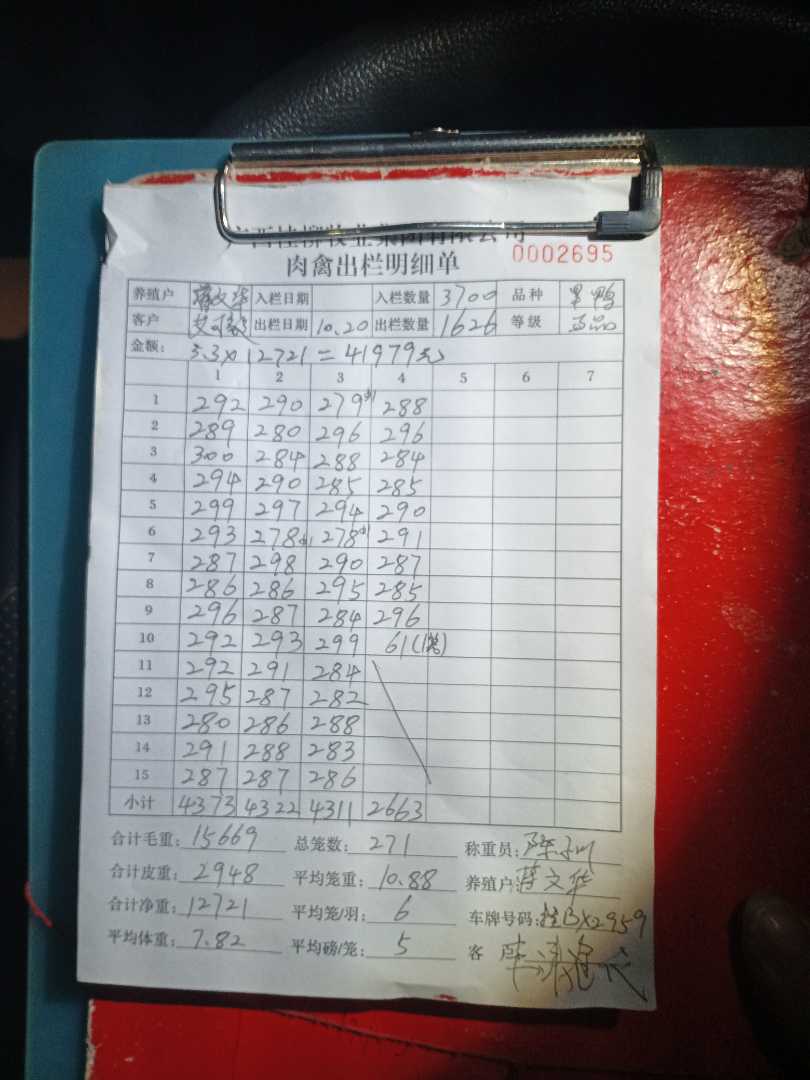 广西桂柳牧业集团有限公司
肉禽出栏明细单 0002695
养殖户 蒋文华 入栏日期 入栏数量 3700 品种
客户 出栏日期 10.20 出栏数量 1626 等级
金额: 3.3x12721=41979元
1 2 3 4 5 6 7
1 292 290 279 288
2 289 280 296 296
3 300 284 288 284
4 294 290 285 285
5 299 297 294 290
6 293 278 278 291
7 287 298 290 287
8 286 286 295 285
9 296 287 284 296
10 292 293 299 61(1笼)
11 292 291 284
12 295 287 282
13 280 286 288
14 291 288 283
15 287 287 286
小计 4373 4322 4311 2663
合计毛重: 15669 总笼数: 271 称重员:
合计皮重: 2948 平均笼重: 10.88 养殖户: 蒋文华
合计净重: 12721 平均笼/羽: 6 车牌号码: 桂BX2959
平均体重: 7.82 平均磅/笼: 5 客户